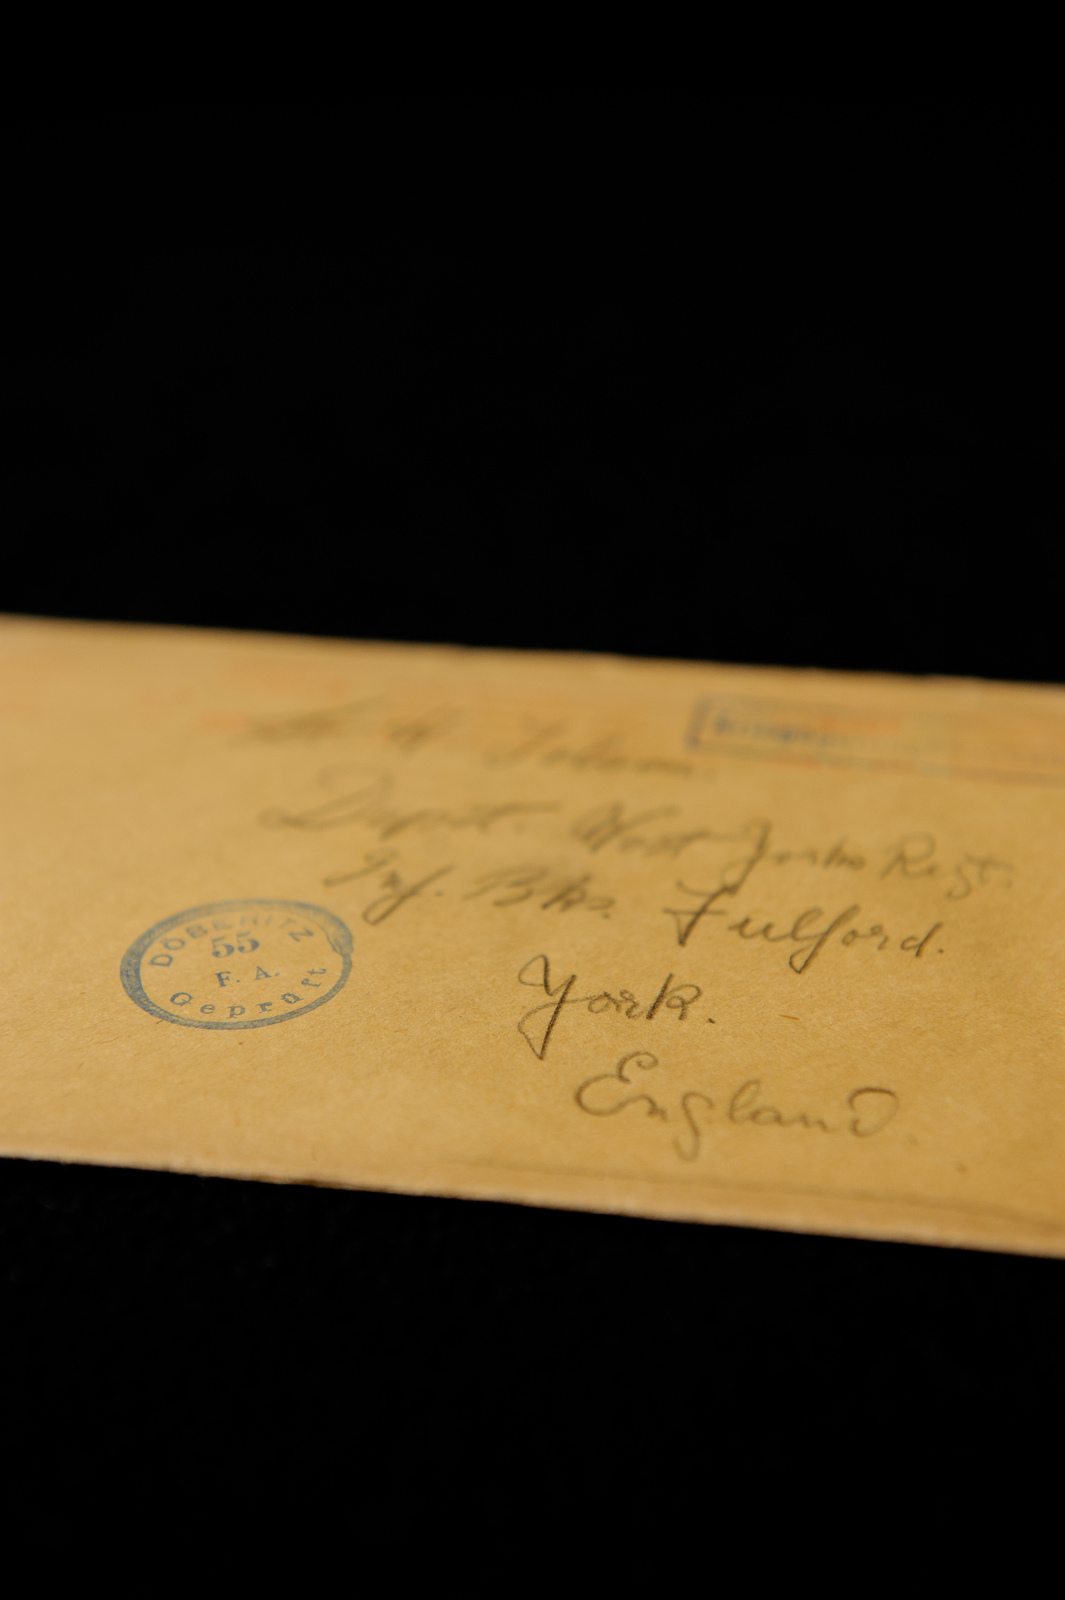 Depôt. West Yorks Regt.
Inf. Bks. Fulford.
York.
England.
DÖBERITZ
55
F. A.
Geprüft